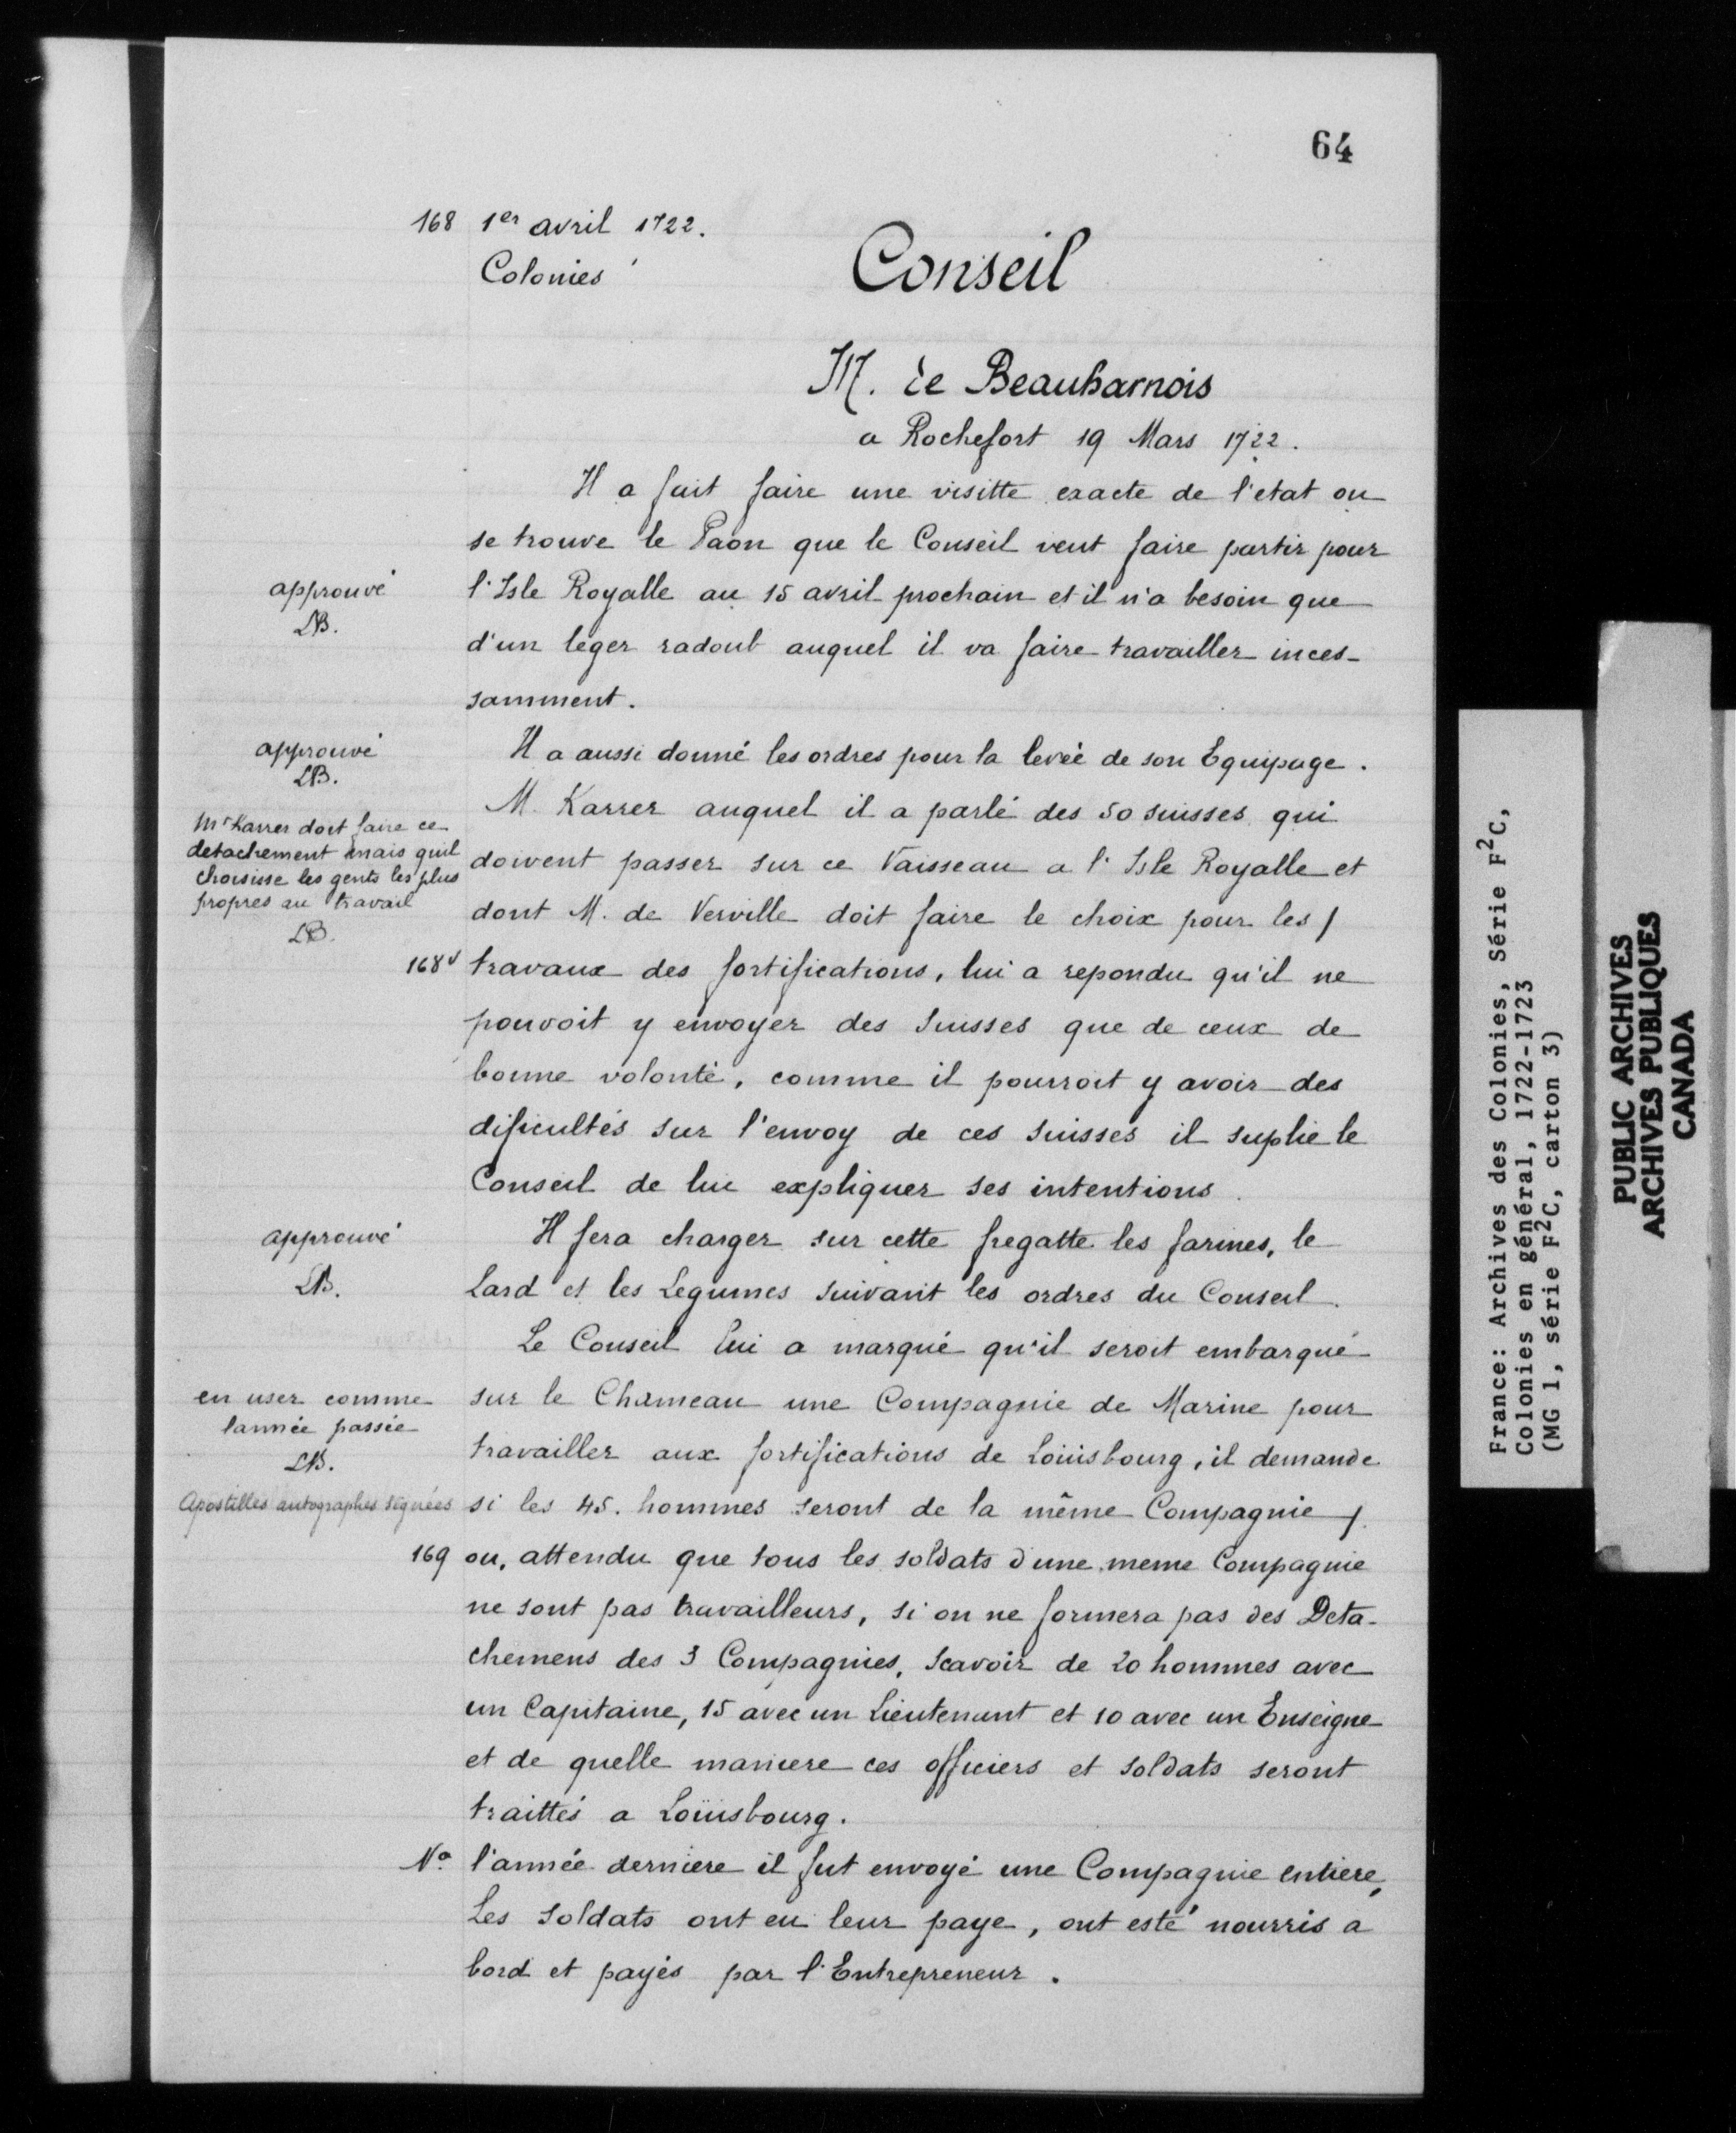 64
168 1er avril 1722.
Colonies
Conseil
M. de Beauharnois
a Rochefort 19 Mars 1722.
Il a fait faire une visitte exacte de l'etat ou
se trouve le Paon que le Conseil veut faire partir pour
approuvé
LB.
l'Isle Royalle au 15 avril prochain et il n'a besoin que
d'un leger radoub auquel il va faire travailler inces-
samment.
approuvé
LB.
Il a aussi donné les ordres pour la levée de son Equipage.
Mr Karrer doit faire ce
detachement mais quil
choisisse les gents les plus
propres au travail
LB.
M. Karrer auquel il a parlé des 50 suisses qui
doivent passer sur ce Vaisseau a l'Isle Royalle et
dont M. de Verville doit faire le choix pour les /
168v travaux des fortifications, lui a repondu qu'il ne
pouvoit y envoyer des Suisses que de ceux de
bonne volonté, comme il pourroit y avoir des
dificultés sur l'envoy de ces suisses il suplie le
Conseil de lui expliquer ses intentions.
approuvé
LB.
Il fera charger sur cette fregatte les farines, le
Lard et les Legumes suivant les ordres du Conseil.
Le Conseil lui a marqué qu'il seroit embarqué
en user comme
lannée passée
LB.
Apostilles autographes signées
sur le Chameau une Compagnie de Marine pour
travailler aux fortifications de Loüisbourg, il demande
si les 45. hommes seront de la même Compagnie /.
169 ou, attendu que tous les soldats d'une meme Compagnie
ne sont pas travailleurs, si on ne formera pas des Deta-
chemens des 3 Compagnies, scavoir de 20 hommes avec
un Capitaine, 15 avec un Lieutenant et 10 avec un Enseigne
et de quelle maniere ces officiers et soldats seront
traittés a Loüisbourg.
No. l'année derniere il fut envoyé une Compagnie entiere,
Les soldats ont eu leur paye, ont esté nourris a
bord et payés par l'Entrepreneur.
France: Archives des Colonies, Série F2C,
Colonies en général, 1722-1723
(MG 1, série F2C, carton 3)
PUBLIC ARCHIVES
ARCHIVES PUBLIQUES
CANADA